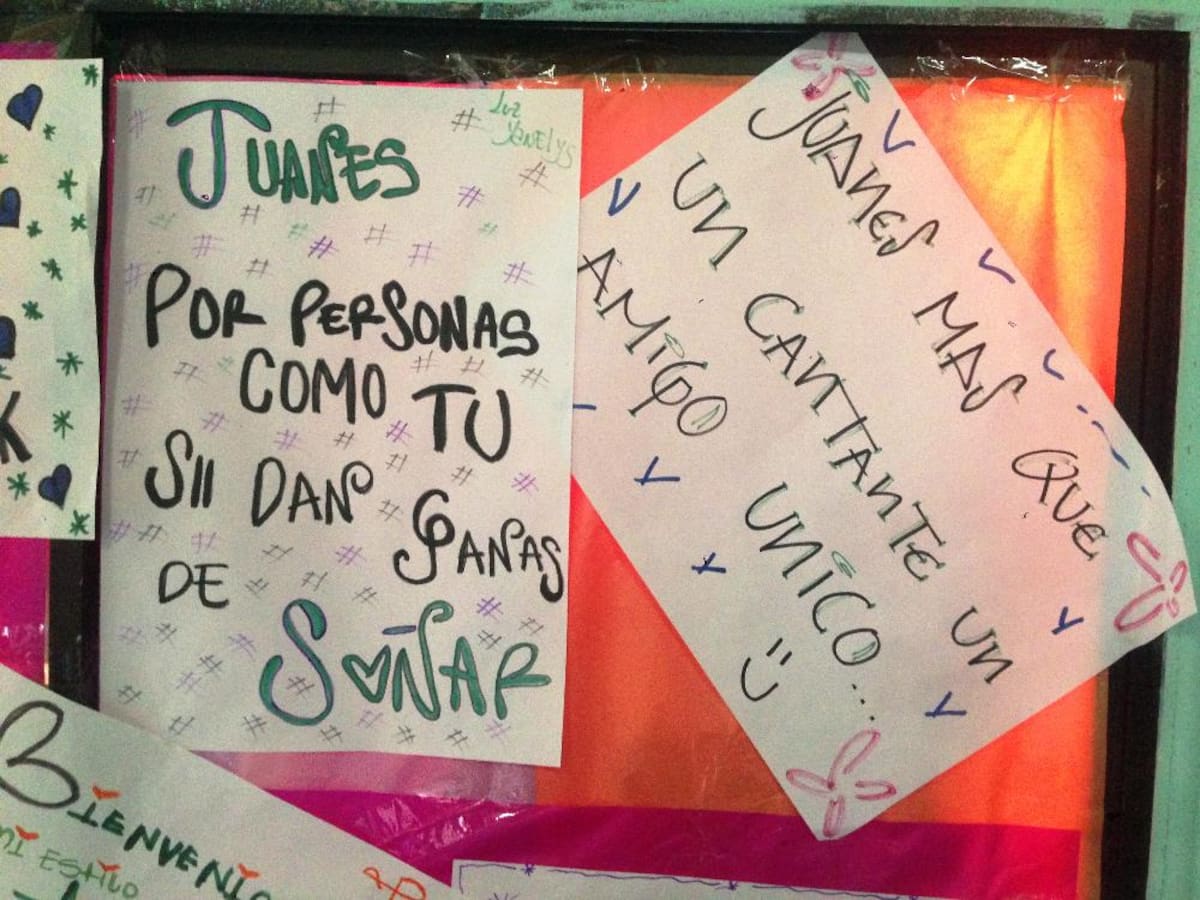 JUANES
Luz
Yenelys
POR PERSONAS
COMO TU
SII DAN GANAS
DE
SOÑAR
JUANES MAS QUE
UN CANTANTE UN
AMIGO UNICO...
K
BIENVENI
MI ESTILO